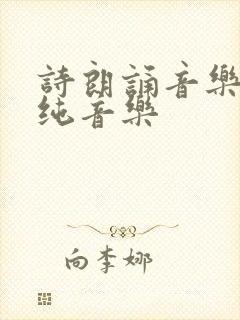 詩朗誦音樂
纯音樂
向李娜